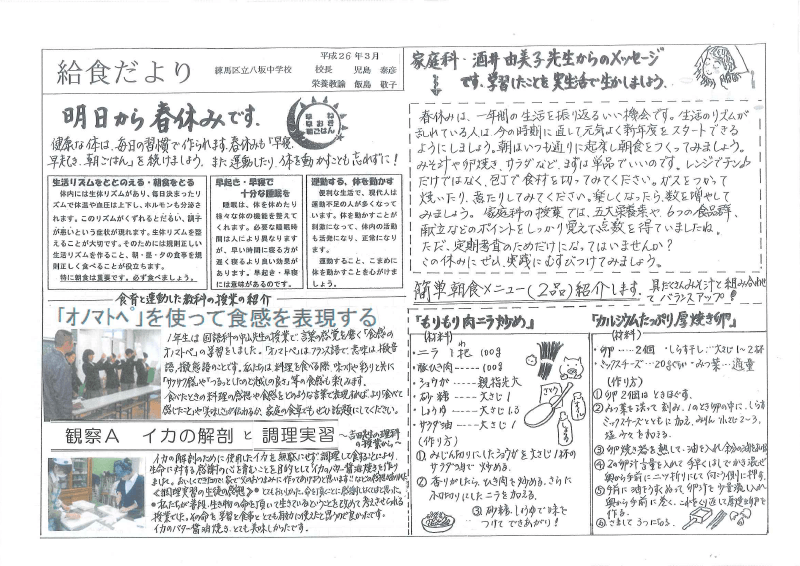 給食だより
平成26年3月
練馬区立八坂中学校
校長 児島 泰彦
栄養教諭 飯島 敬子
明日から春休みです。
健康な体は、毎日の習慣で作られます。春休みも「早寝、
早起き、朝ごはん」を続けましょう。また運動したり、体を動かすことも忘れずに!
生活リズムをととのえる・朝食をとる
体内には生体リズムがあり、毎日決まったリ
ズムで体温や血圧は上下し、ホルモンも分泌さ
れます。このリズムがくずれるとだるい、調子
が悪いという症状が現れます。生体リズムを整
えることが大切です。そのためには規則正しい
生活リズムを作ること、朝・昼・夕の食事を規
則正しく食べることが役立ちます。
特に朝食は重要です。必ず食べましょう。
早起き・早寝で
十分な睡眠を
睡眠は、体を休めたり
様々な体の機能を整えて
くれます。必要な睡眠時
間は人により異なります
が、早い時間に寝る方が
遅く寝るより良い効果が
あります。早起き・早寝
には意味があるのです。
運動する、体を動かす
便利な生活で、現代人は
運動不足の人が多くなって
います。体を動かすことが
刺激になって、体内の活動
も活発になり、正常になり
ます。
運動すること、こまめに
体を動かすことを心がけま
しょう。
食育と運動した教科の授業の紹介
「オノマトペ」を使って食感を表現する
1年生は国語科の
先生の授業で、言葉の感覚を磨く「食感の
オノマトペ」の学習をしました。「オノマトペ」はフランス語で、意味は、擬音
語、擬態語のことです。私たちは料理を食べる際、味や香りと共に
「サクサク感」や「つるっとしたのど越しの良さ」等の食感も楽しみます。
食べたときの料理の感想や食感をどのような言葉で表現すればより食べて
観察A イカの解剖と調理実習
~吉田先生の理科
の授業から~
イカの解剖のために使用したイカを無駄にせず調理して食することにより、
生命に対する感謝の心を育むことを目的としてイカのバター醤油焼きを作り
ました。
《調理実習の生徒の感想》
イカのバター醤油焼き、とても美味しかったです。
家庭科・酒井由美子先生からのメッセージ
です。学習したことを実生活で生かしましょう。
春休みは、一年間の生活を振り返るいい機会です。生活のリズムが
乱れている人は、今の時期に直して元気よく新年度をスタートできる
ようにしましょう。朝はいつも通りに起床し朝食をつくってみましょう。
みそ汁や卵焼き、サラダなど、まずは単品でいいのです。レンジでチンだ
だけではなく、包丁で食材を切ってみてください。ガスをつかって
焼いたり、蒸したりしてみてください。楽しくなったら、数を増やして
みましょう。家庭科の授業では、五大栄養素や、6つの食品群、
献立などのポイントをしっかり覚えて点数を得ていましたね。
ただ、定期考査のためだけになってはいませんか?
この休みにぜひ、実践にむすびつけてみましょう。
簡単朝食メニュー(2品)紹介します。
具だくさんみそ汁と組み合わせ
てバランスアップ!
「もりもり肉ニラ炒め」
(材料)
・ニラ 1把 100g
・豚ひき肉 100g
・ショウガ 親指先大
・砂糖 大さじ1
・しょうゆ 大さじ1.5
・サラダ油 大さじ1
(作り方)
①みじん切りにしたショウガを大さじ1杯の
サラダ油で炒める。
②香りがしたら、ひき肉を炒める。さらに
小口切りにしたニラを加える。
③砂糖、しょうゆで味を
つけてできあがり!
「カルシウムたっぷり厚焼き卵」
(材料)
・卵……2個 ・しらす干し…大さじ1~2杯
・ミックスチーズ…20gぐらい ・みつ葉…適量
(作り方)
①卵2個はときほぐす。
②みつ葉を洗って刻み、①のとき卵の中に、しらす
ミックスチーズとともに加え、みりん小さじ2~3、
塩少々を加える。
⑥さまして3つに切る。